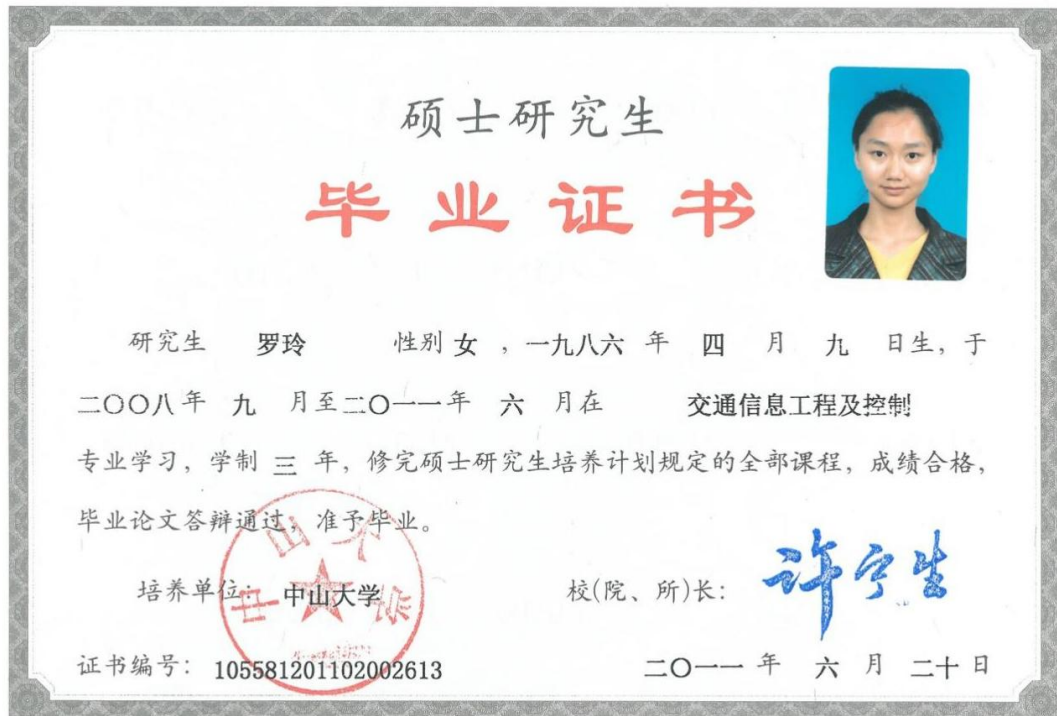 硕士研究生
毕业证书
研究生 罗玲 性别 女 ，一九八六 年 四 月 九 日生，于
二〇〇八年 九 月至二〇一一年 六 月在 交通信息工程及控制
专业学习，学制 三 年，修完硕士研究生培养计划规定的全部课程，成绩合格，
毕业论文答辩通过，准予毕业。
中山大学
培养单位： 中山大学 校(院、所)长： 许宁生
证书编号： 105581201102002613 二〇一一 年 六 月 二十 日